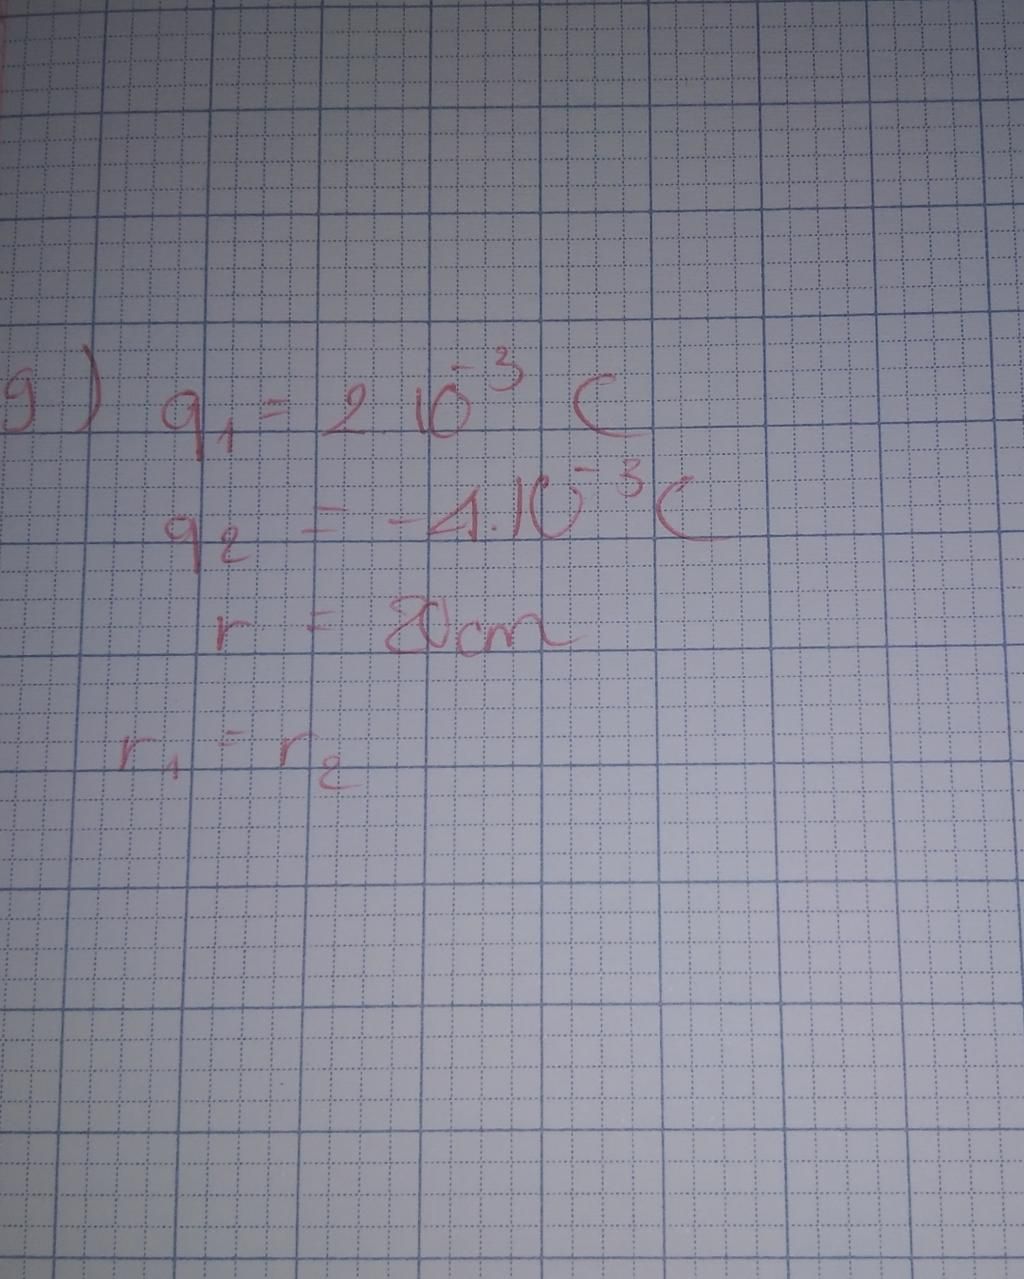 9) q₁ = 2 10⁻³ C
q₂ = -4.10⁻³ C
r = 20cm
r₁ = r₂